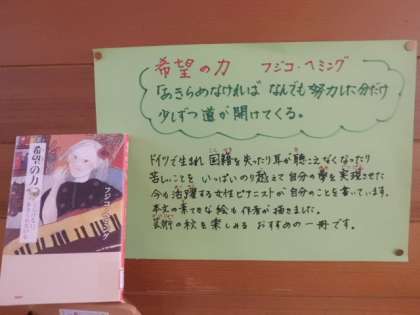 希望の力 フジコ・ヘミング
「あきらめなければ なんでも努力した分だけ
少しずつ道が開けてくる。
ドイツで生まれ 国籍を失ったり耳が聴こえなくなったり
苦しいことを いっぱいのり越えて自分の夢を実現させた
今も活躍する女性ピアニストが自分のことを書いています。
本文の素てきな絵も作者が描きました。
芸術の秋を楽しめる おすすめの一冊です。
希望の力
フジコ・ヘミング